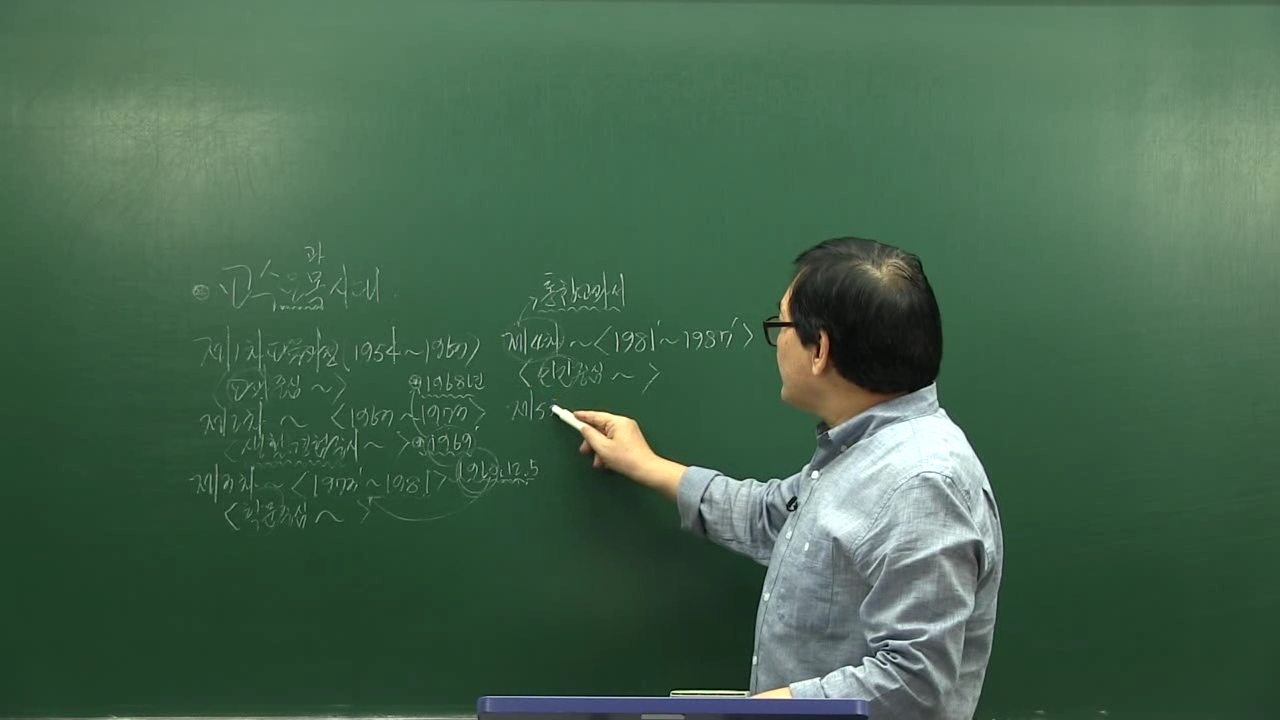 과
교수요목시대
제1차교육과정(1954~1963)
<교과중심~>
⊙1968년
제2차 ~ <1963~1973>
<생활·경험중심~>
⊙1969
제3차~ <1973'~1981>
1968.12.5
<학문중심~>
통합교과서
제4차 ~ <1981'~1987'>
<인간중심~>
제5